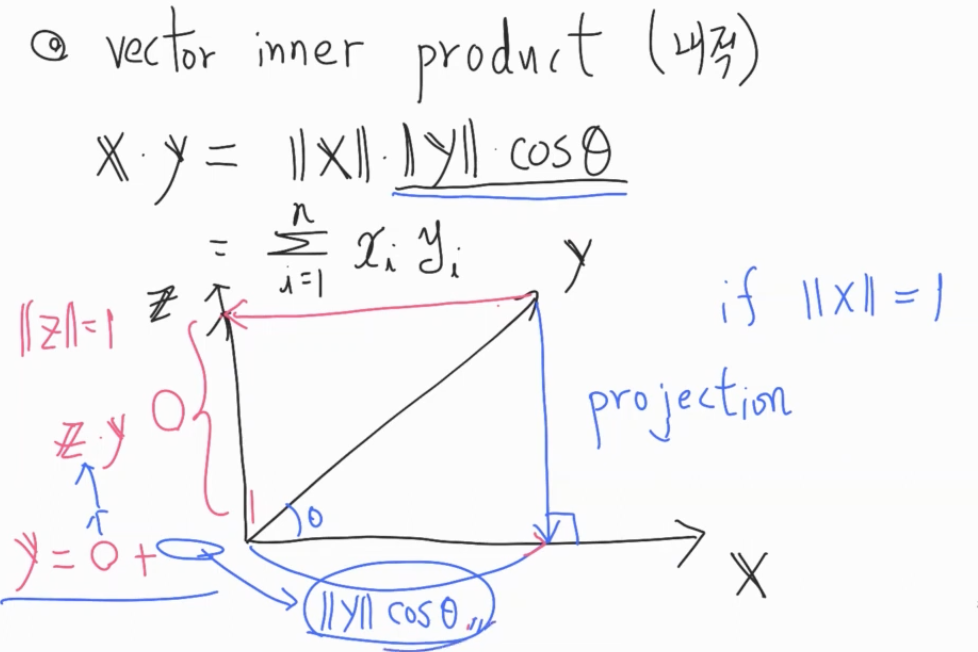 vector inner product (내적)
x · y = ||x|| · ||y|| · cos θ
= Σ_{i=1}^{n} x_i y_i
y
if ||x|| = 1
z
||z|| = 1
projection
O
z · y
θ
y = O +
x
||y|| cos θ